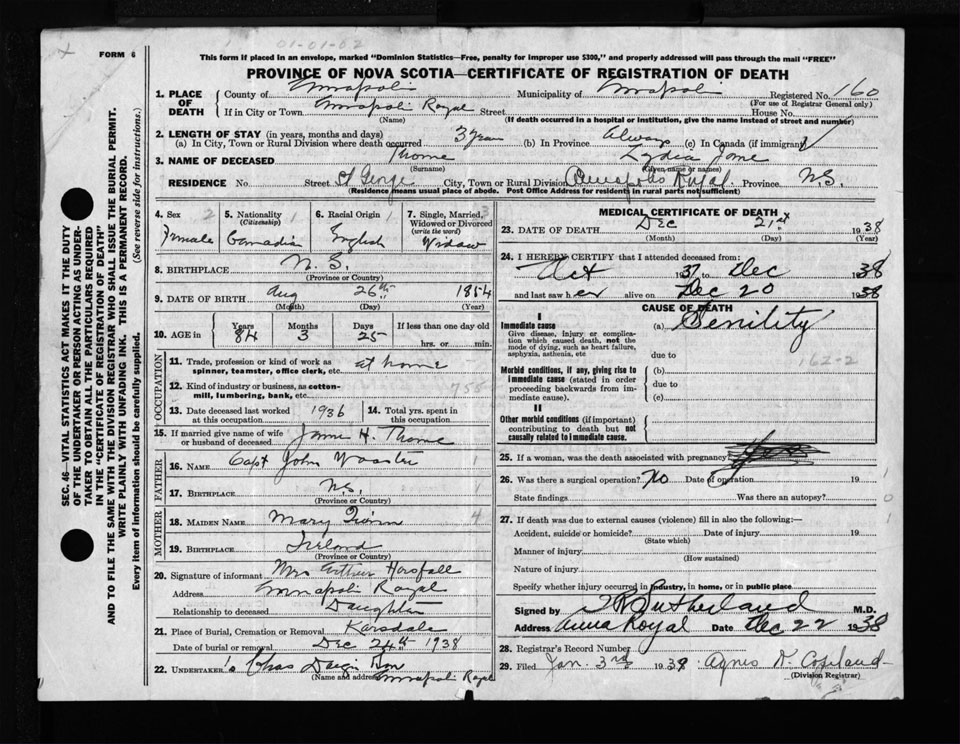 01-01-02
FORM 6
This form if placed in an envelope, marked "Dominion Statistics—Free, penalty for improper use $300," and properly addressed will pass through the mail "FREE"
PROVINCE OF NOVA SCOTIA—CERTIFICATE OF REGISTRATION OF DEATH
SEC. 46—VITAL STATISTICS ACT MAKES IT THE DUTY
OF THE UNDERTAKER OR PERSON ACTING AS UNDER-
TAKER TO OBTAIN ALL THE PARTICULARS REQUIRED
IN THE "CERTIFICATE OF REGISTRATION OF DEATH"
AND TO FILE THE SAME WITH THE DIVISION REGISTRAR WHO SHALL ISSUE THE BURIAL PERMIT.
WRITE PLAINLY WITH UNFADING INK. THIS IS A PERMANENT RECORD.
Every item of information should be carefully supplied. (See reverse side for instructions.)
1. PLACE OF DEATH
County of Annapolis Municipality of Annapolis Registered No. 160
(For use of Registrar General only)
If in City or Town Annapolis Royal Street House No.
(Name) (If death occurred in a hospital or institution, give the name instead of street and number)
2. LENGTH OF STAY (in years, months and days)
(a) In City, Town or Rural Division where death occurred 3 years (b) In Province Always (c) In Canada (if immigrant)
3. NAME OF DECEASED Thorne Lydia Jane
(Surname) (Given name or names)
RESIDENCE No. Street St George City, Town or Rural Division Annapolis Royal Province N.S.
(Residence means usual place of abode. Post Office Address for residents in rural parts not sufficient)
4. Sex 2
Female
5. Nationality 1
(Citizenship)
Canadian
6. Racial Origin 1
English
7. Single, Married, Widowed or Divorced 3
(write the word)
Widow
8. BIRTHPLACE N.S.
(Province or Country)
9. DATE OF BIRTH Aug 26th 1854
(Month) (Day) (Year)
10. AGE in Years Months Days If less than one day old
84 3 25 hrs. or min.
OCCUPATION
11. Trade, profession or kind of work as
spinner, teamster, office clerk, etc. at home
12. Kind of industry or business, as cotton-
mill, lumbering, bank, etc.
13. Date deceased last worked
at this occupation 1936
14. Total yrs. spent in
this occupation
15. If married give name of wife
or husband of deceased James H. Thorne
FATHER
16. NAME Capt John
17. BIRTHPLACE N.S.
(Province or Country)
MOTHER
18. MAIDEN NAME Mary 4
19. BIRTHPLACE Ireland
(Province or Country)
20. Signature of informant Mrs Arthur Horsfall
Address Annapolis Royal
Relationship to deceased Daughter
21. Place of Burial, Cremation or Removal Karsdale
Date of burial or removal Dec 24th 1938
22. UNDERTAKER's Chas Son
(Name and address) Annapolis Royal
MEDICAL CERTIFICATE OF DEATH
23. DATE OF DEATH Dec 21st 1938
(Month) (Day) (Year)
24. I HEREBY CERTIFY that I attended deceased from:
Oct 37 to Dec 1938
and last saw her alive on Dec 20 1938
CAUSE OF DEATH
I
Immediate cause (a) Senility
Give disease, injury or complica-
tion which caused death, not the
mode of dying, such as heart failure,
asphyxia, asthenia, etc
due to
162-2
Morbid conditions, if any, giving rise to (b)
immediate cause (stated in order due to
proceeding backwards from im-
mediate cause). (c)
II
Other morbid conditions (if important)
contributing to death but not
causally related to immediate cause.
25. If a woman, was the death associated with pregnancy
26. Was there a surgical operation? No Date of operation 19
State findings Was there an autopsy?
27. If death was due to external causes (violence) fill in also the following:—
Accident, suicide or homicide? Date of injury 19
(State which)
Manner of injury
(How sustained)
Nature of injury
Specify whether injury occurred in industry, in home, or in public place
Signed by Sutherland M.D.
Address Anna Royal Date Dec 22 1938
28. Registrar's Record Number
29. Filed Jan. 3rd 1939 Agnes N. Copeland
(Division Registrar)